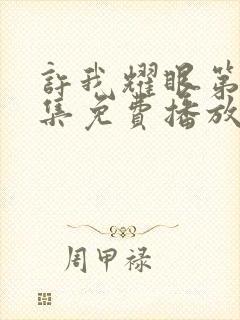 許我耀眼第
集免費播放
周甲禄